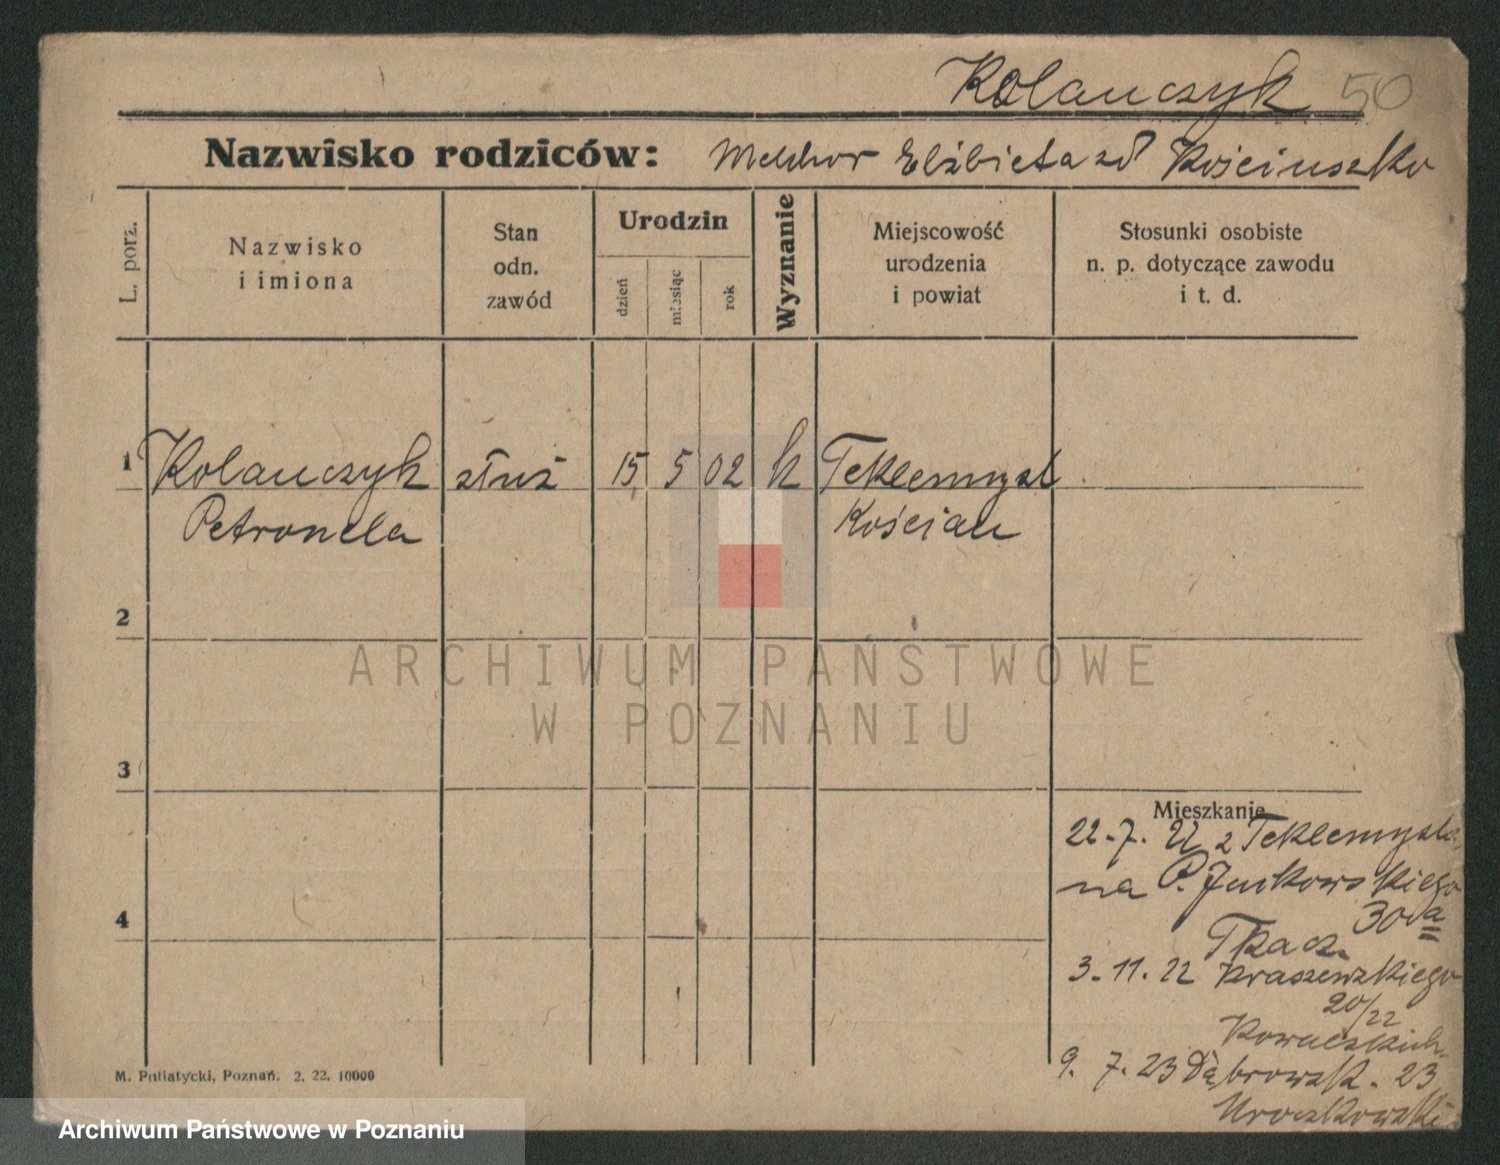 Kolanczyk 50
Nazwisko rodziców: Melchor Elżbieta zd Kościuszko
L. porz.
Nazwisko
i imiona
Stan
odn.
zawód
Urodzin
dzień
miesiąc
rok
Wyznanie
Miejscowość
urodzenia
i powiat
Stosunki osobiste
n. p. dotyczące zawodu
i t. d.
1 Kolanczyk służ 15 5 02 k Teklemyśl
Petronela Kościan
2
3
4
ARCHIWUM PAŃSTWOWE
W POZNANIU
Mieszkanie
22.7.22 z Teklemyśla
na P. Jenkowskiego
30
Tkacz
3.11.22 Kraszewskiego
20/22
9.7.23 Dąbrowsk. 23
M. Putiatycki, Poznań. 2. 22. 10000
Archiwum Państwowe w Poznaniu